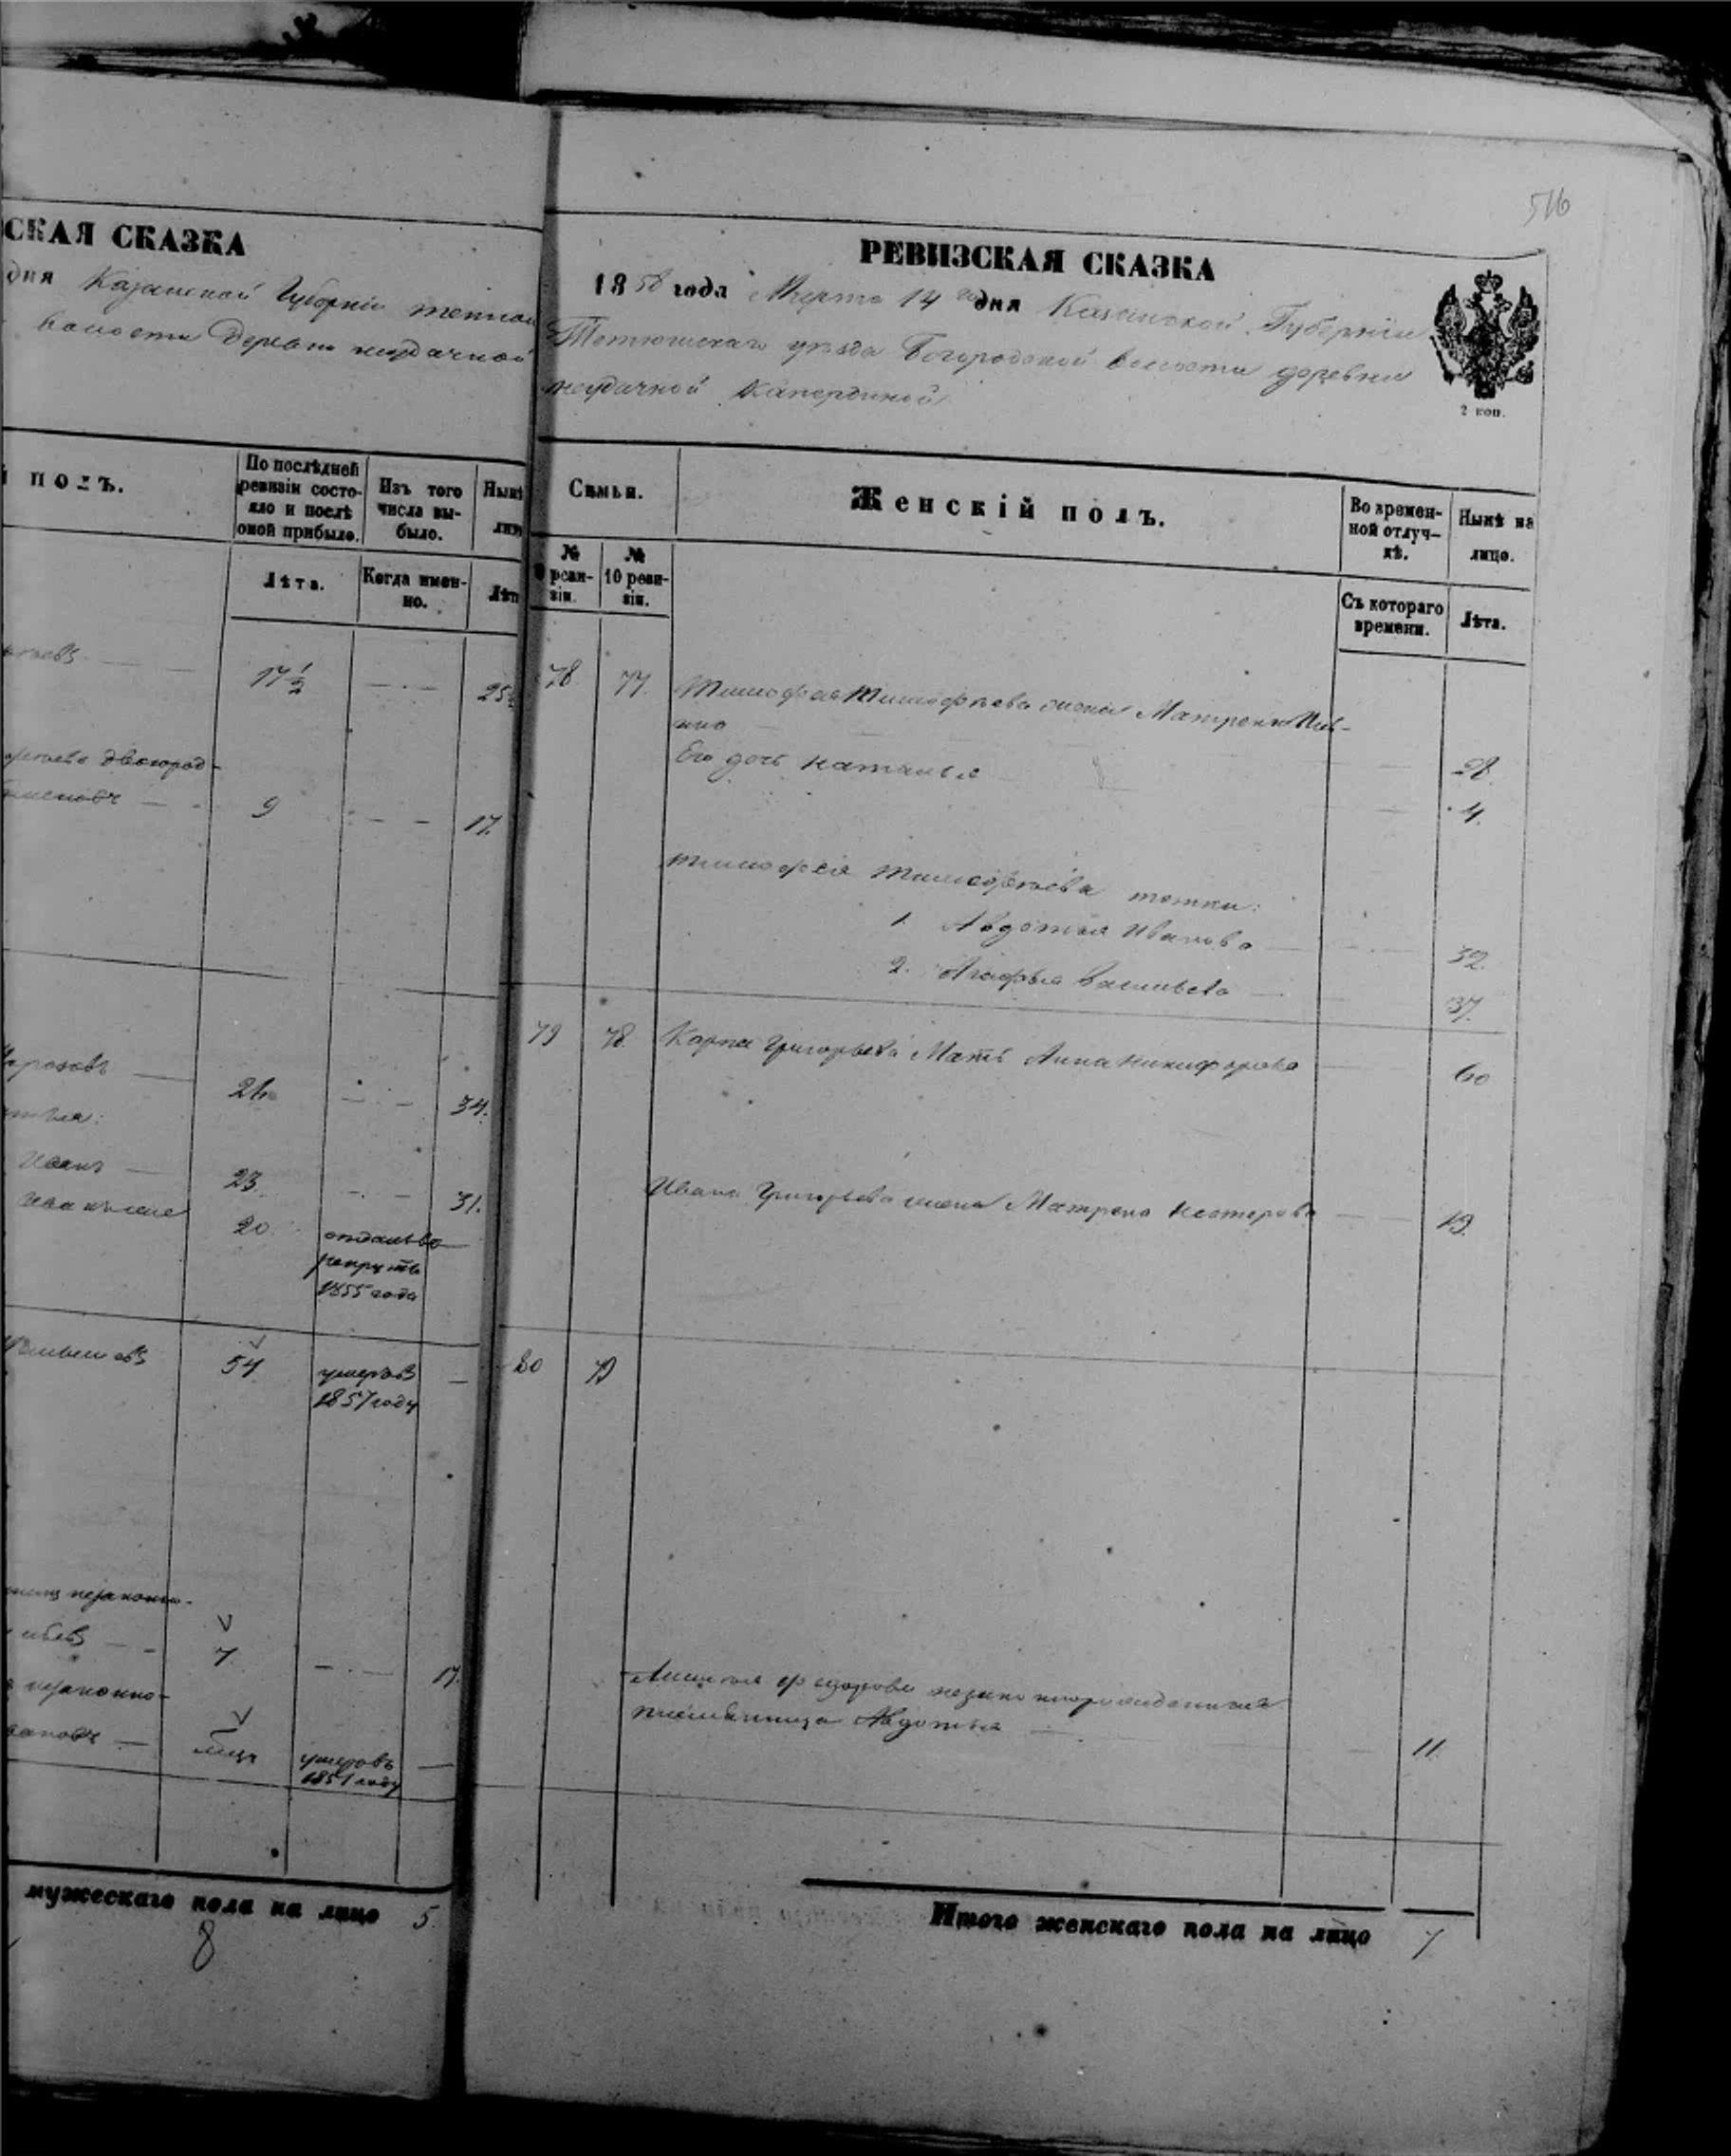 СКАЯ СКАЗКА
дня Казанской Губернии
волости Деревни неудачной
й полъ.
По послѣдней ревизіи состо-
яло и послѣ
оной прибыло.
Изъ того
числа вы-
было.
Нынѣ
Лѣта.
Когда имен-
но.
Лѣт
17½
25½
двоюрод-
9
17.
26
34.
Иванъ
23
31.
20
отданъ во
рекруты
1855 года
54
умеръ въ
1857 году
незаконно-
7
17.
незаконно-
умеръ въ
1851 году
мужескаго пола на лицо 5.
8
516
РЕВИЗСКАЯ СКАЗКА
1858 года Марта 14 го дня Казанской Губерніи
Тетюшскаго уѣзда Богородской волости деревни
неудачной
2 коп.
Семьи.
Женскій полъ.
Во времен-
ной отлуч-
кѣ.
Ныпѣ на
лицо.
№
ревизіи.
№
10 реви-
зіи.
Съ котораго
времени.
Лѣта.
78 77. Тимофея Тимофѣева жена Матрена
Его дочь Наталья
28
4.
Тимофея Тимофѣева тетки:
1. Авдотья Иванова 32.
2. Агафья Васильева 37.
79 78. Карпа Григорьева Мать Анна Никифорова 60
Ивана Григорьева жена Матрена Нестерова 19.
80 79
Федорова незаконнорожденная
племянница Авдотья 11.
Итого женскаго пола на лицо 7